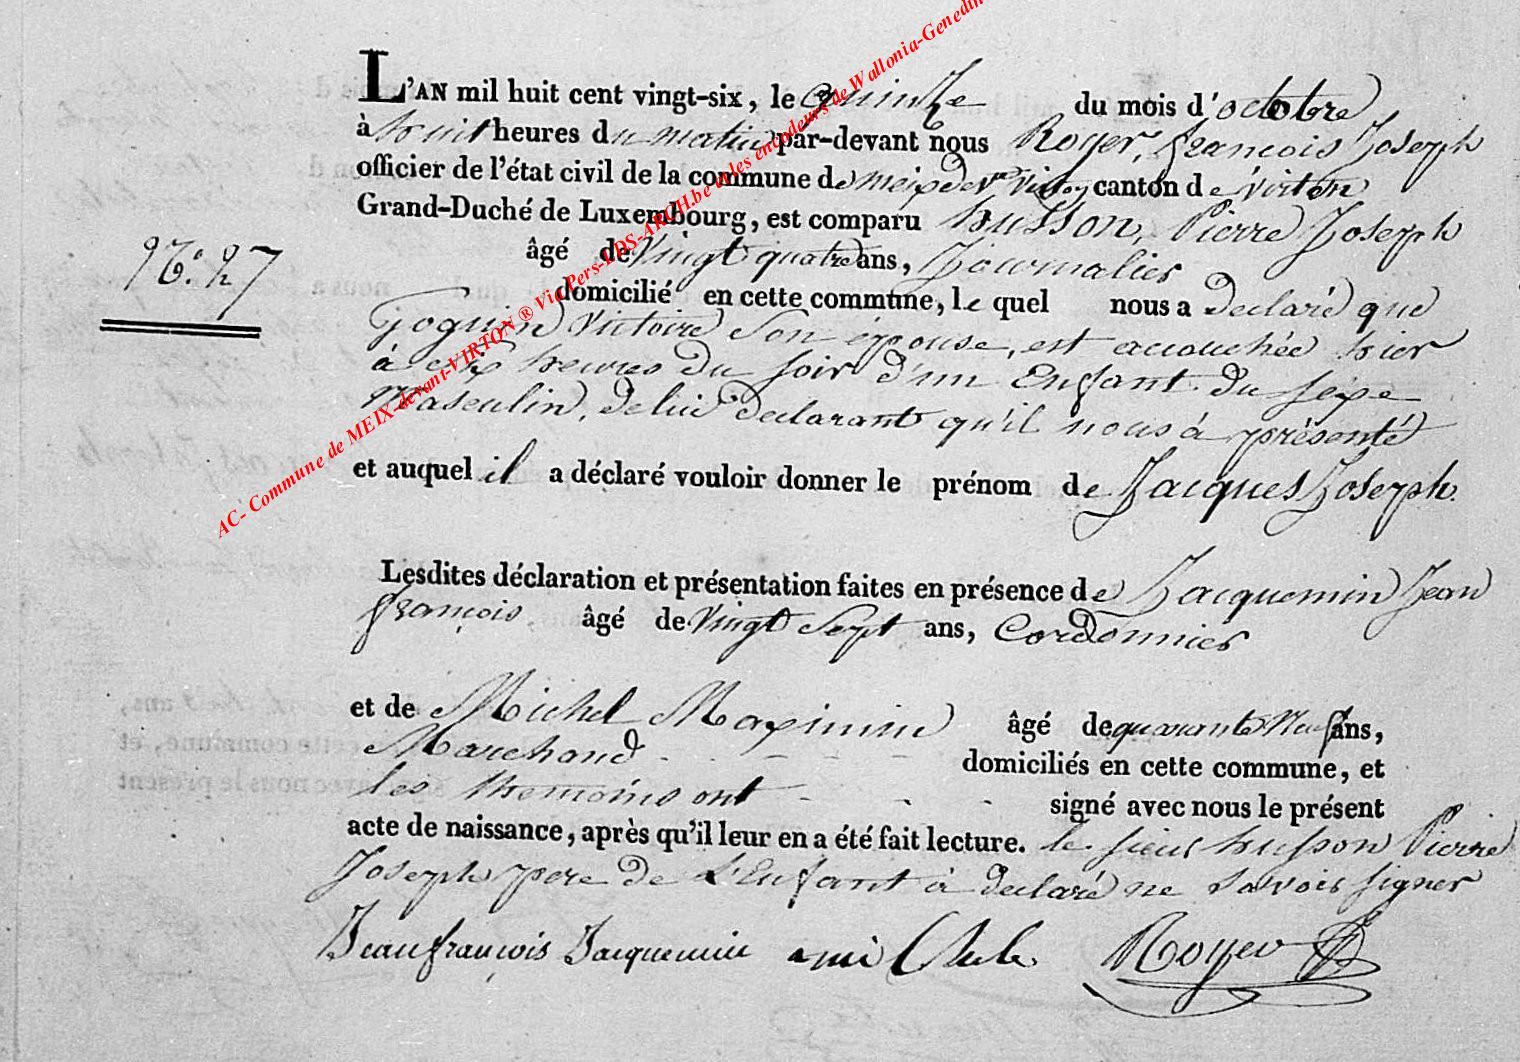 L'AN mil huit cent vingt-six, le quinze du mois d'octobre
à huit heures du matin par-devant nous Royer, françois Joseph
officier de l'état civil de la commune de meix dev.t virton canton de virton
Grand-Duché de Luxembourg, est comparu husson, Pierre Joseph
N.o 27
âgé de Vingt quatre ans, Journalier
domicilié en cette commune, le quel nous a declaré que
Goguin Victoire son épouse, est accouchée hier
à six heures du soir d'un Enfant du sexe
Masculin, de lui declarant qu'il nous à présenté
et auquel il a déclaré vouloir donner le prénom de Jacques Joseph.
Lesdites déclaration et présentation faites en présence de Jacquemin Jean
françois âgé de Vingt Sept ans, Cordonnier
et de Michel Maximin âgé de quarante Neuf ans,
Marchand domiciliés en cette commune, et
les themoins ont signé avec nous le présent
acte de naissance, après qu'il leur en a été fait lecture. le sieur husson Pierre
Joseph pere de L'Enfant à declaré ne savoir signer
Jean françois Jacquemin Royer
AC- Commune de MEIX-devant-VIRTON ® Via Pers-LDS-ARCH.be et les encodeurs de Wallonia-Genedin